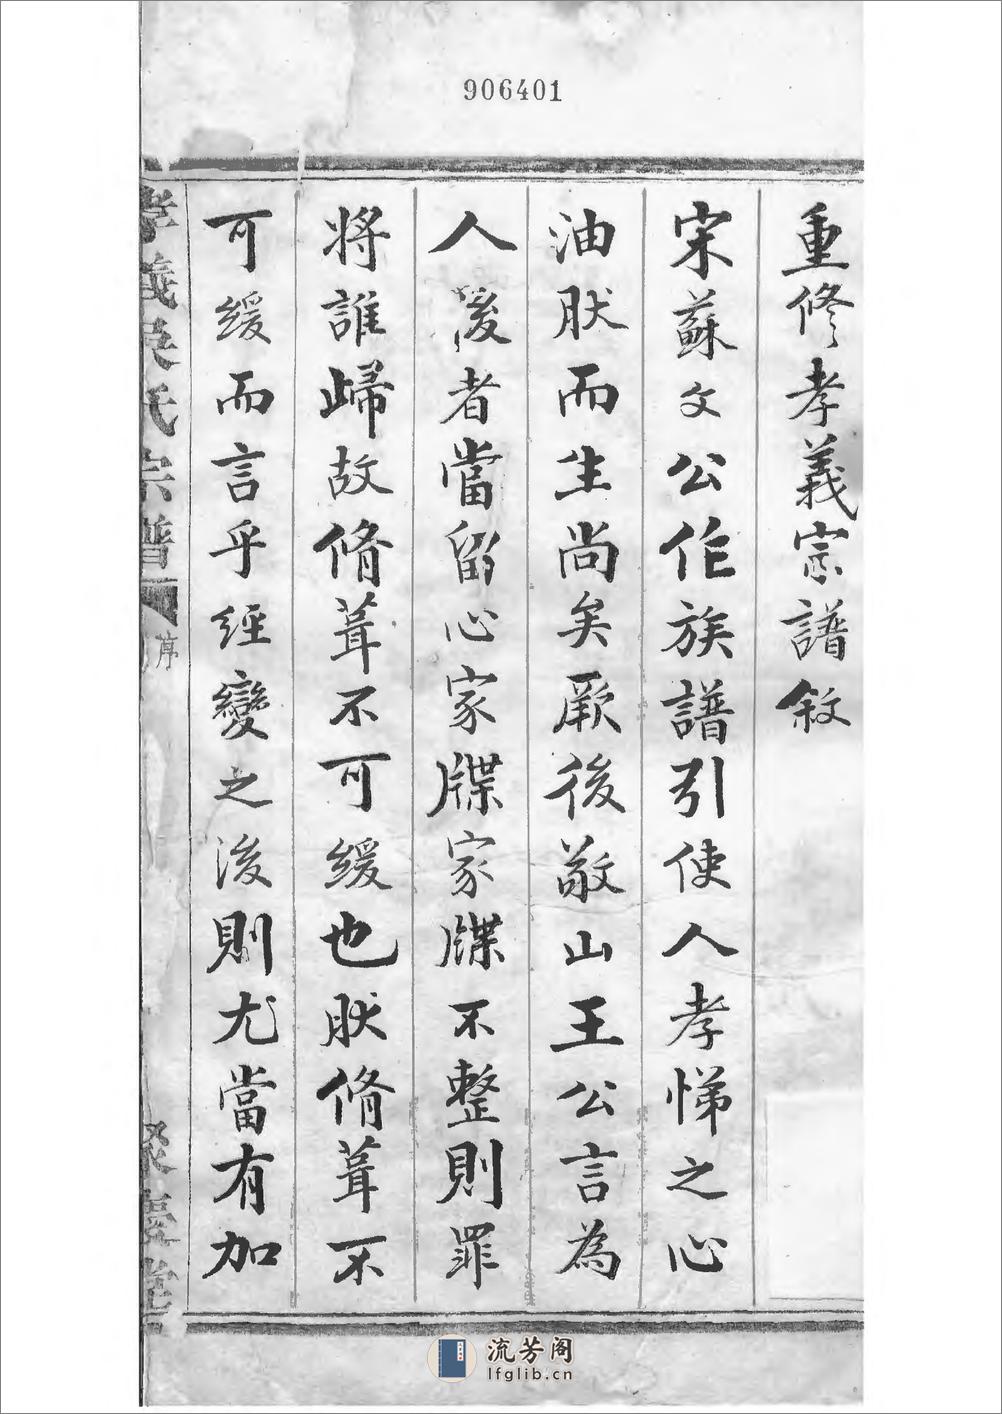 906401
重修孝義宗譜敘
宋蘇文公作族譜引使人孝悌之心
油肰而生尚矣厥後敬山王公言為
人後者當留心家牒家牒不整則罪
將誰歸故脩葺不可緩也肰脩葺不
可緩而言乎經變之後則尤當有加
孝義吳氏宗譜
序
聚慶堂
流芳阁
lfglib.cn